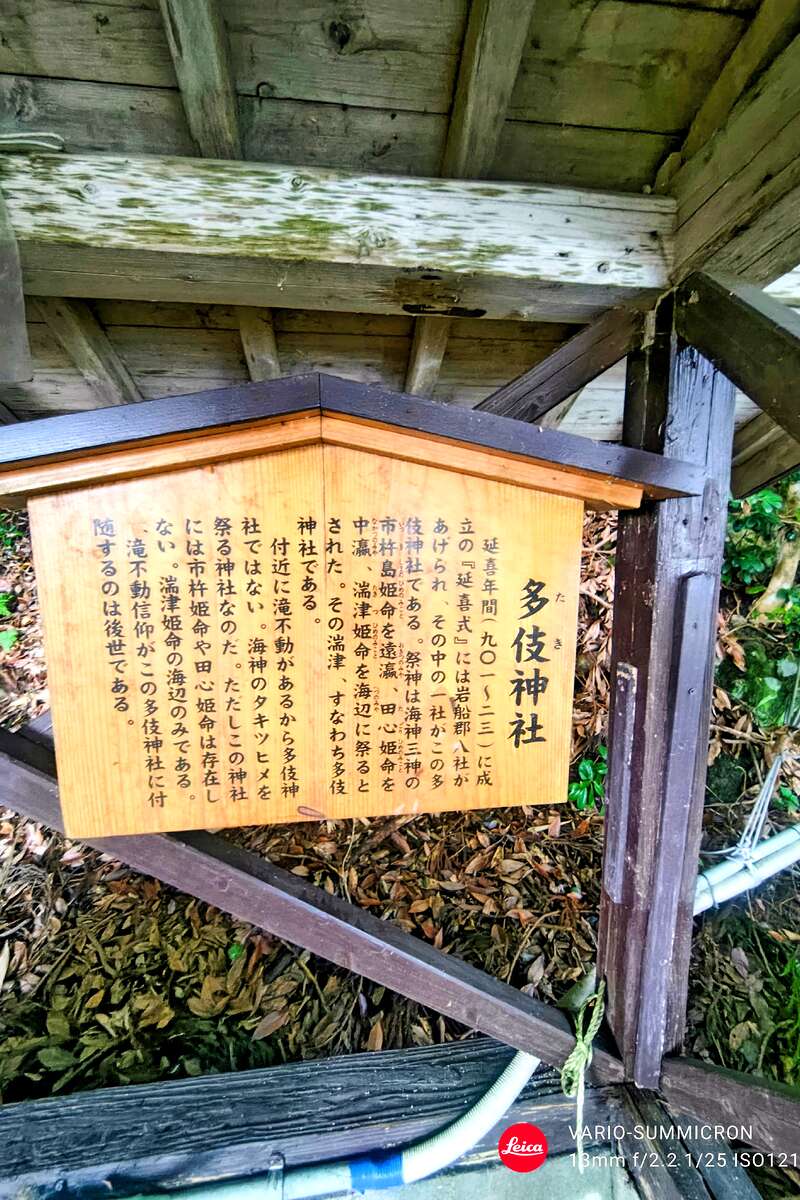 多伎神社
たき
延喜年間(九〇一〜二三)に成
立の『延喜式』には岩船郡八社が
あげられ、その中の一社がこの多
伎神社である。祭神は海神三神の
市杵島姫命を遠瀛、田心姫命を
中瀛、湍津姫命を海辺に祭ると
された。その湍津、すなわち多伎
神社である。
付近に滝不動があるから多伎神
社ではない。海神のタキツヒメを
祭る神社なのだ。ただしこの神社
には市杵姫命や田心姫命は存在し
ない。湍津姫命の海辺のみである。
滝不動信仰がこの多伎神社に付
随するのは後世である。
Leica
VARIO-SUMMICRON
13mm f/2.2 1/25 ISO121